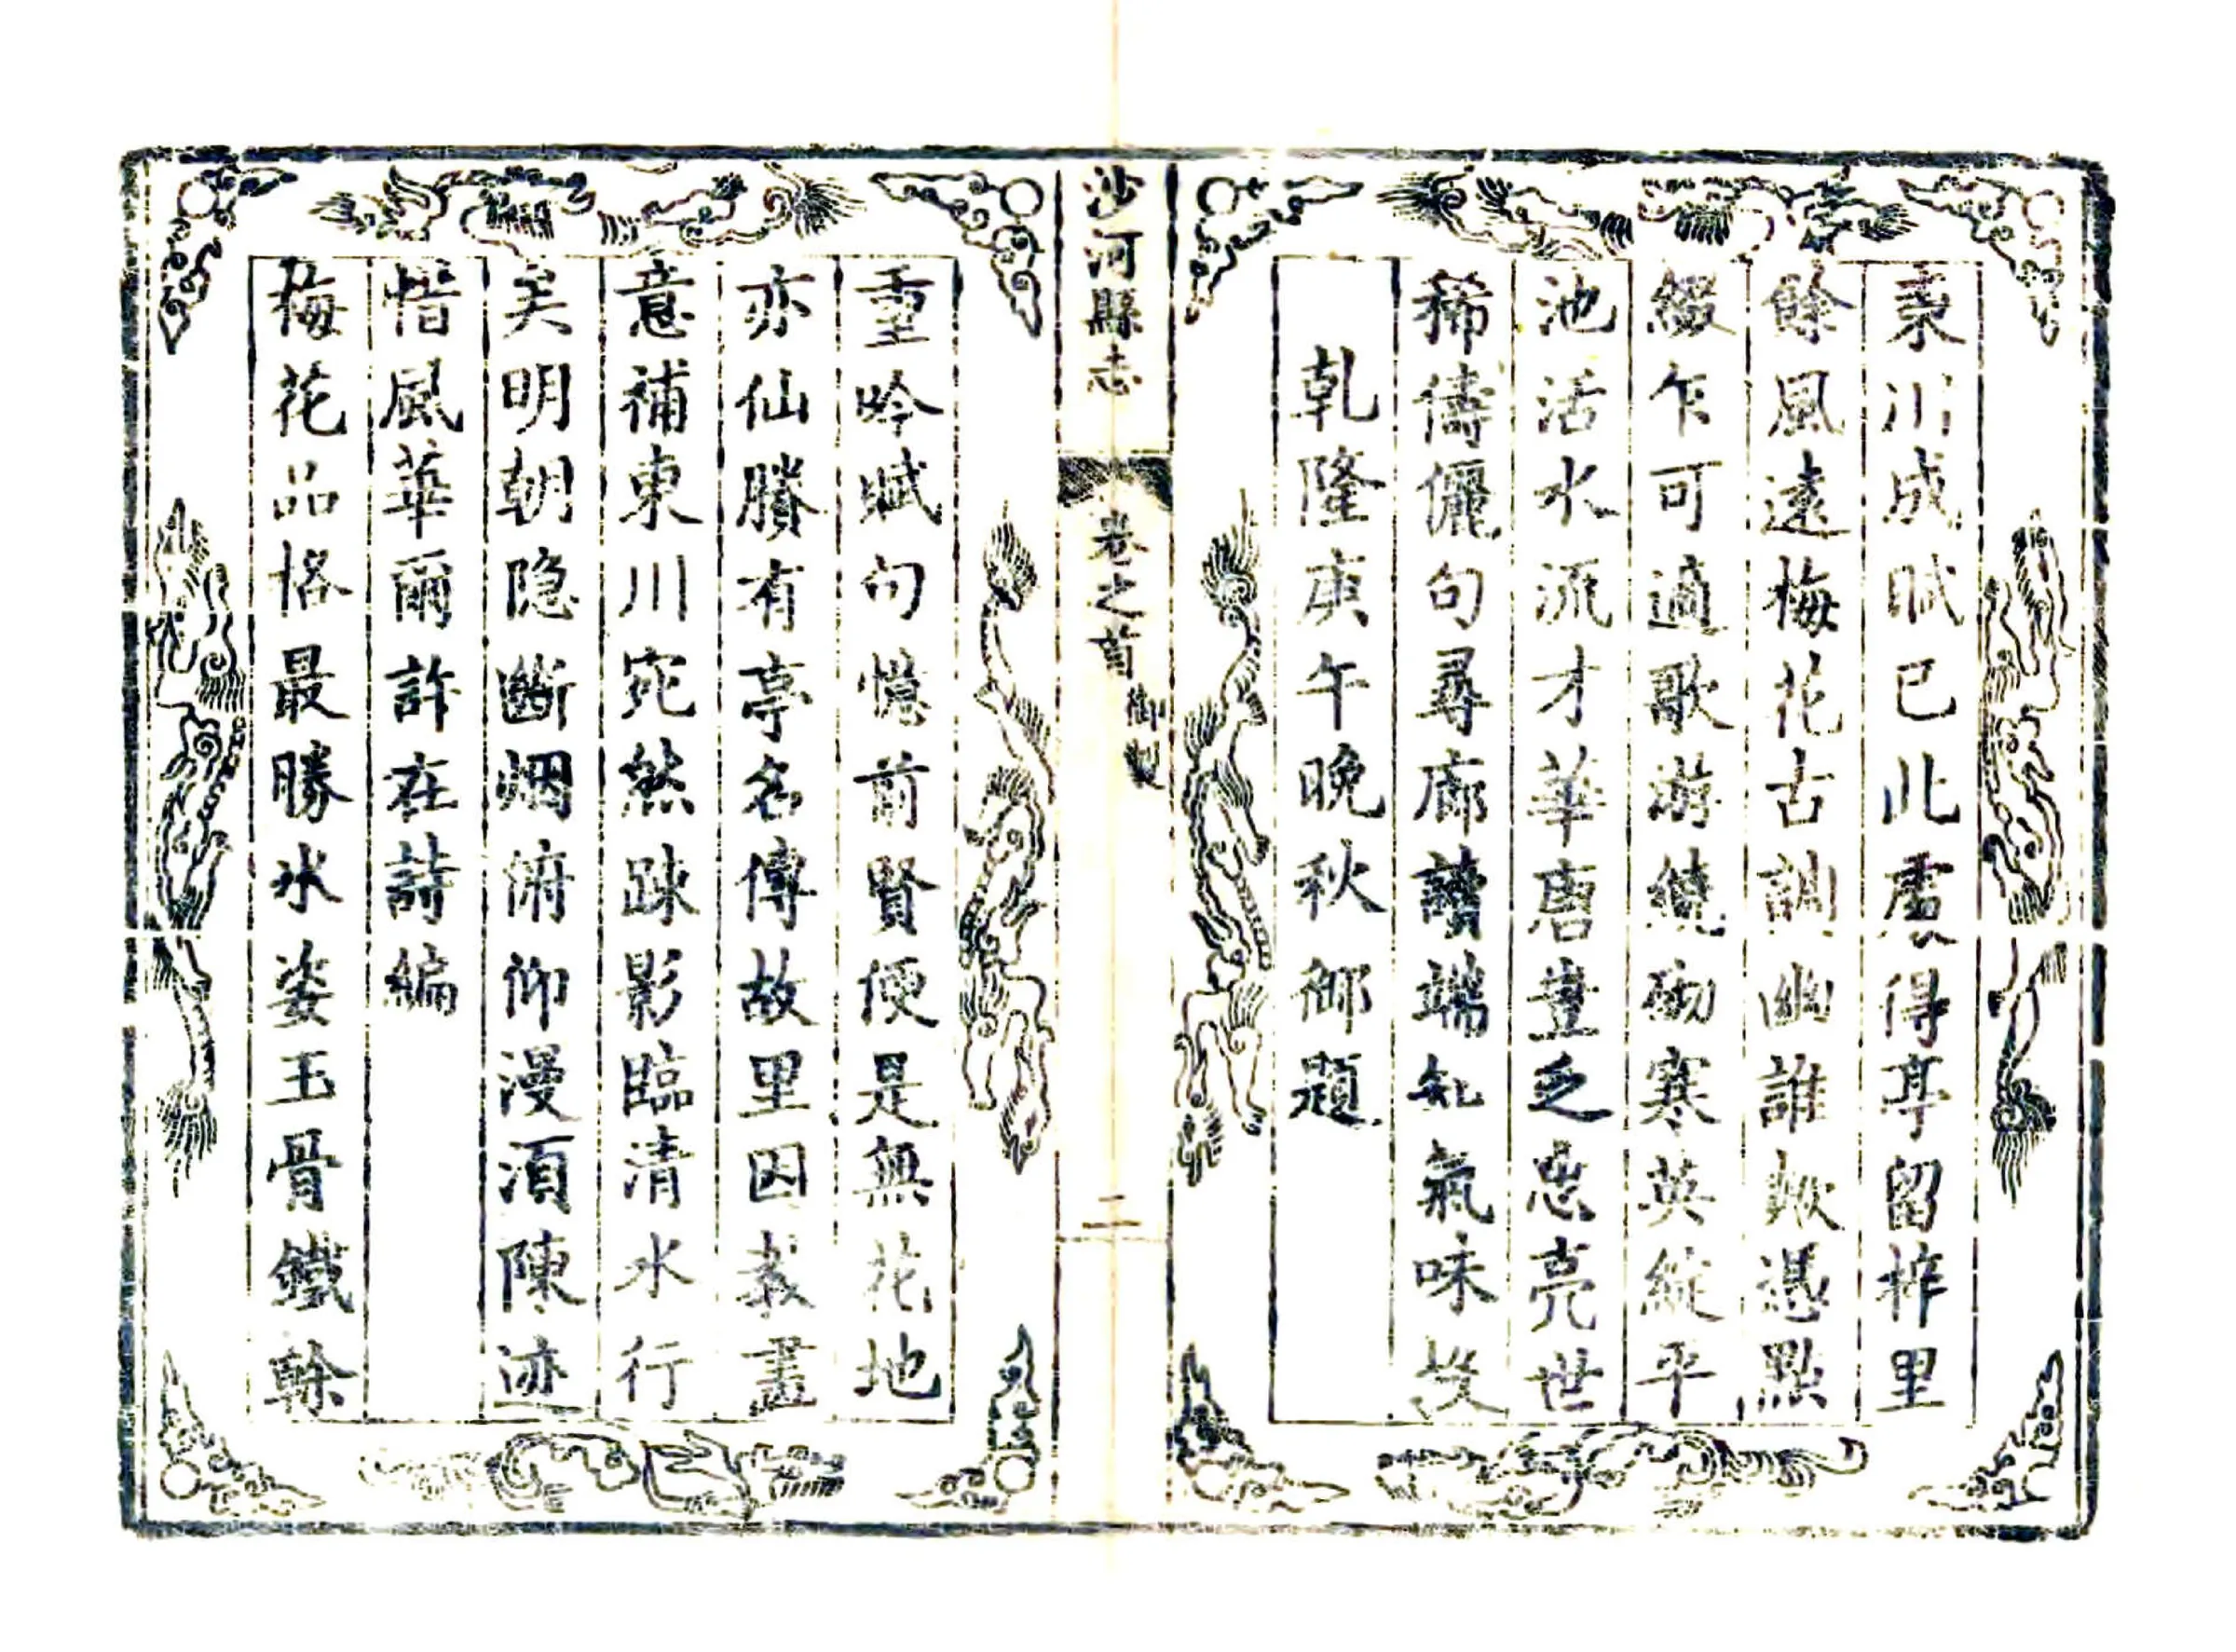 東川成賦已此處得亭留柞里
餘風遠梅花古調幽誰歟憑點
綴乍可適歌游繞砌寒英綻平
池活水流才華唐豈乏忠亮世
稀儔儷句尋廊讀端知氣味投
乾隆庚午晚秋御題
沙河縣志
卷之首
御製
二
重吟賦句憶前賢便是無花地
亦仙賸有亭名傳故里因教畫
意補東川宛然踈影臨清水行
矣明朝隐斷烟俯仰漫湏陳迹
惜風華爾許在詩編
梅花品格最勝氷姿玉骨鐵榦